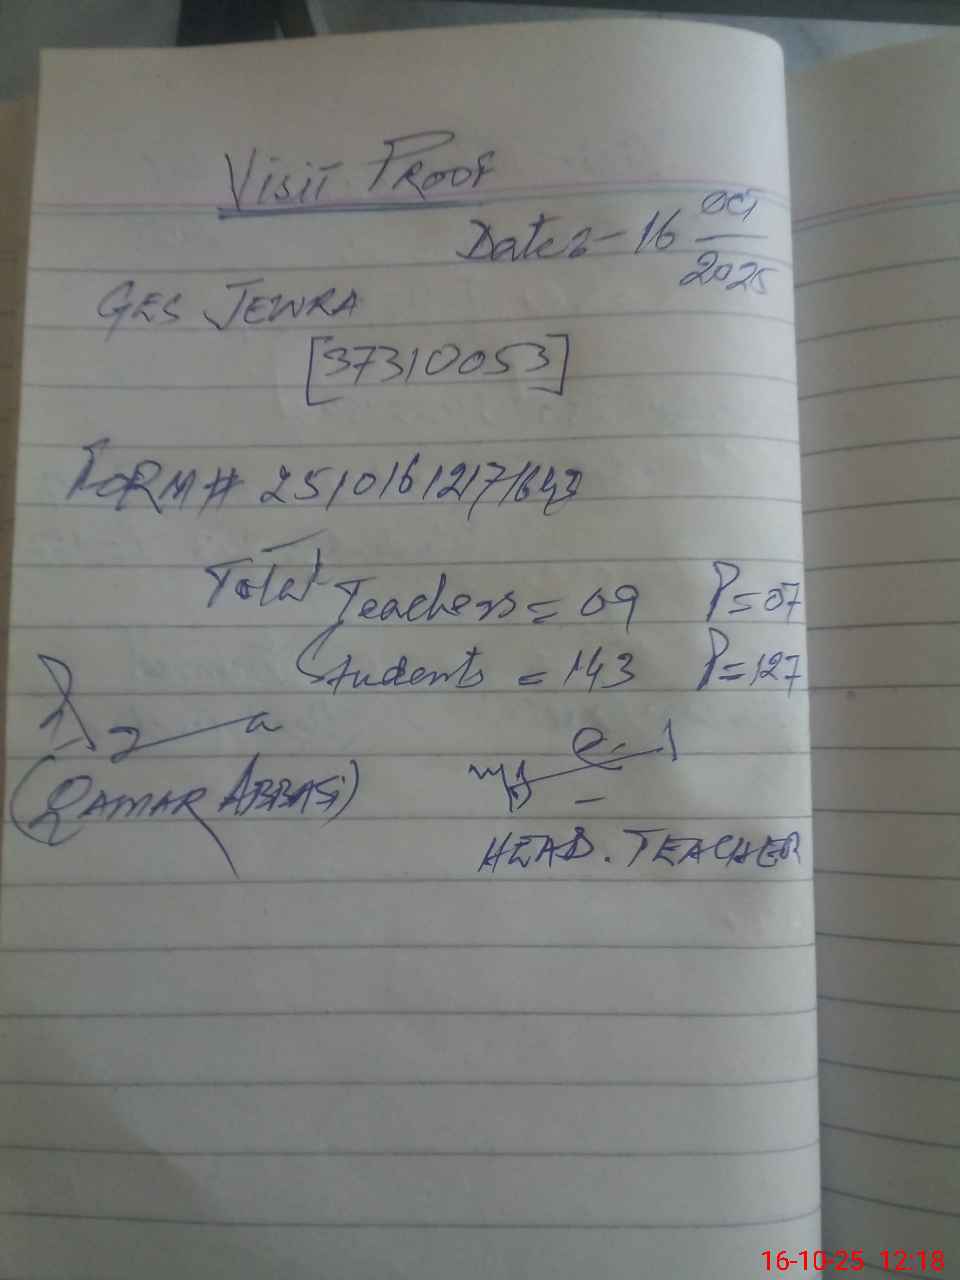 VISIT PROOF
Date:- 16 OCT
2025
GES JEWRA
[37310053]
FORM# 25101612171643
Total Teachers = 09 P=07
Students = 143 P=127
(QAMAR ABBAS)
HEAD. TEACHER
16-10-25 12:18